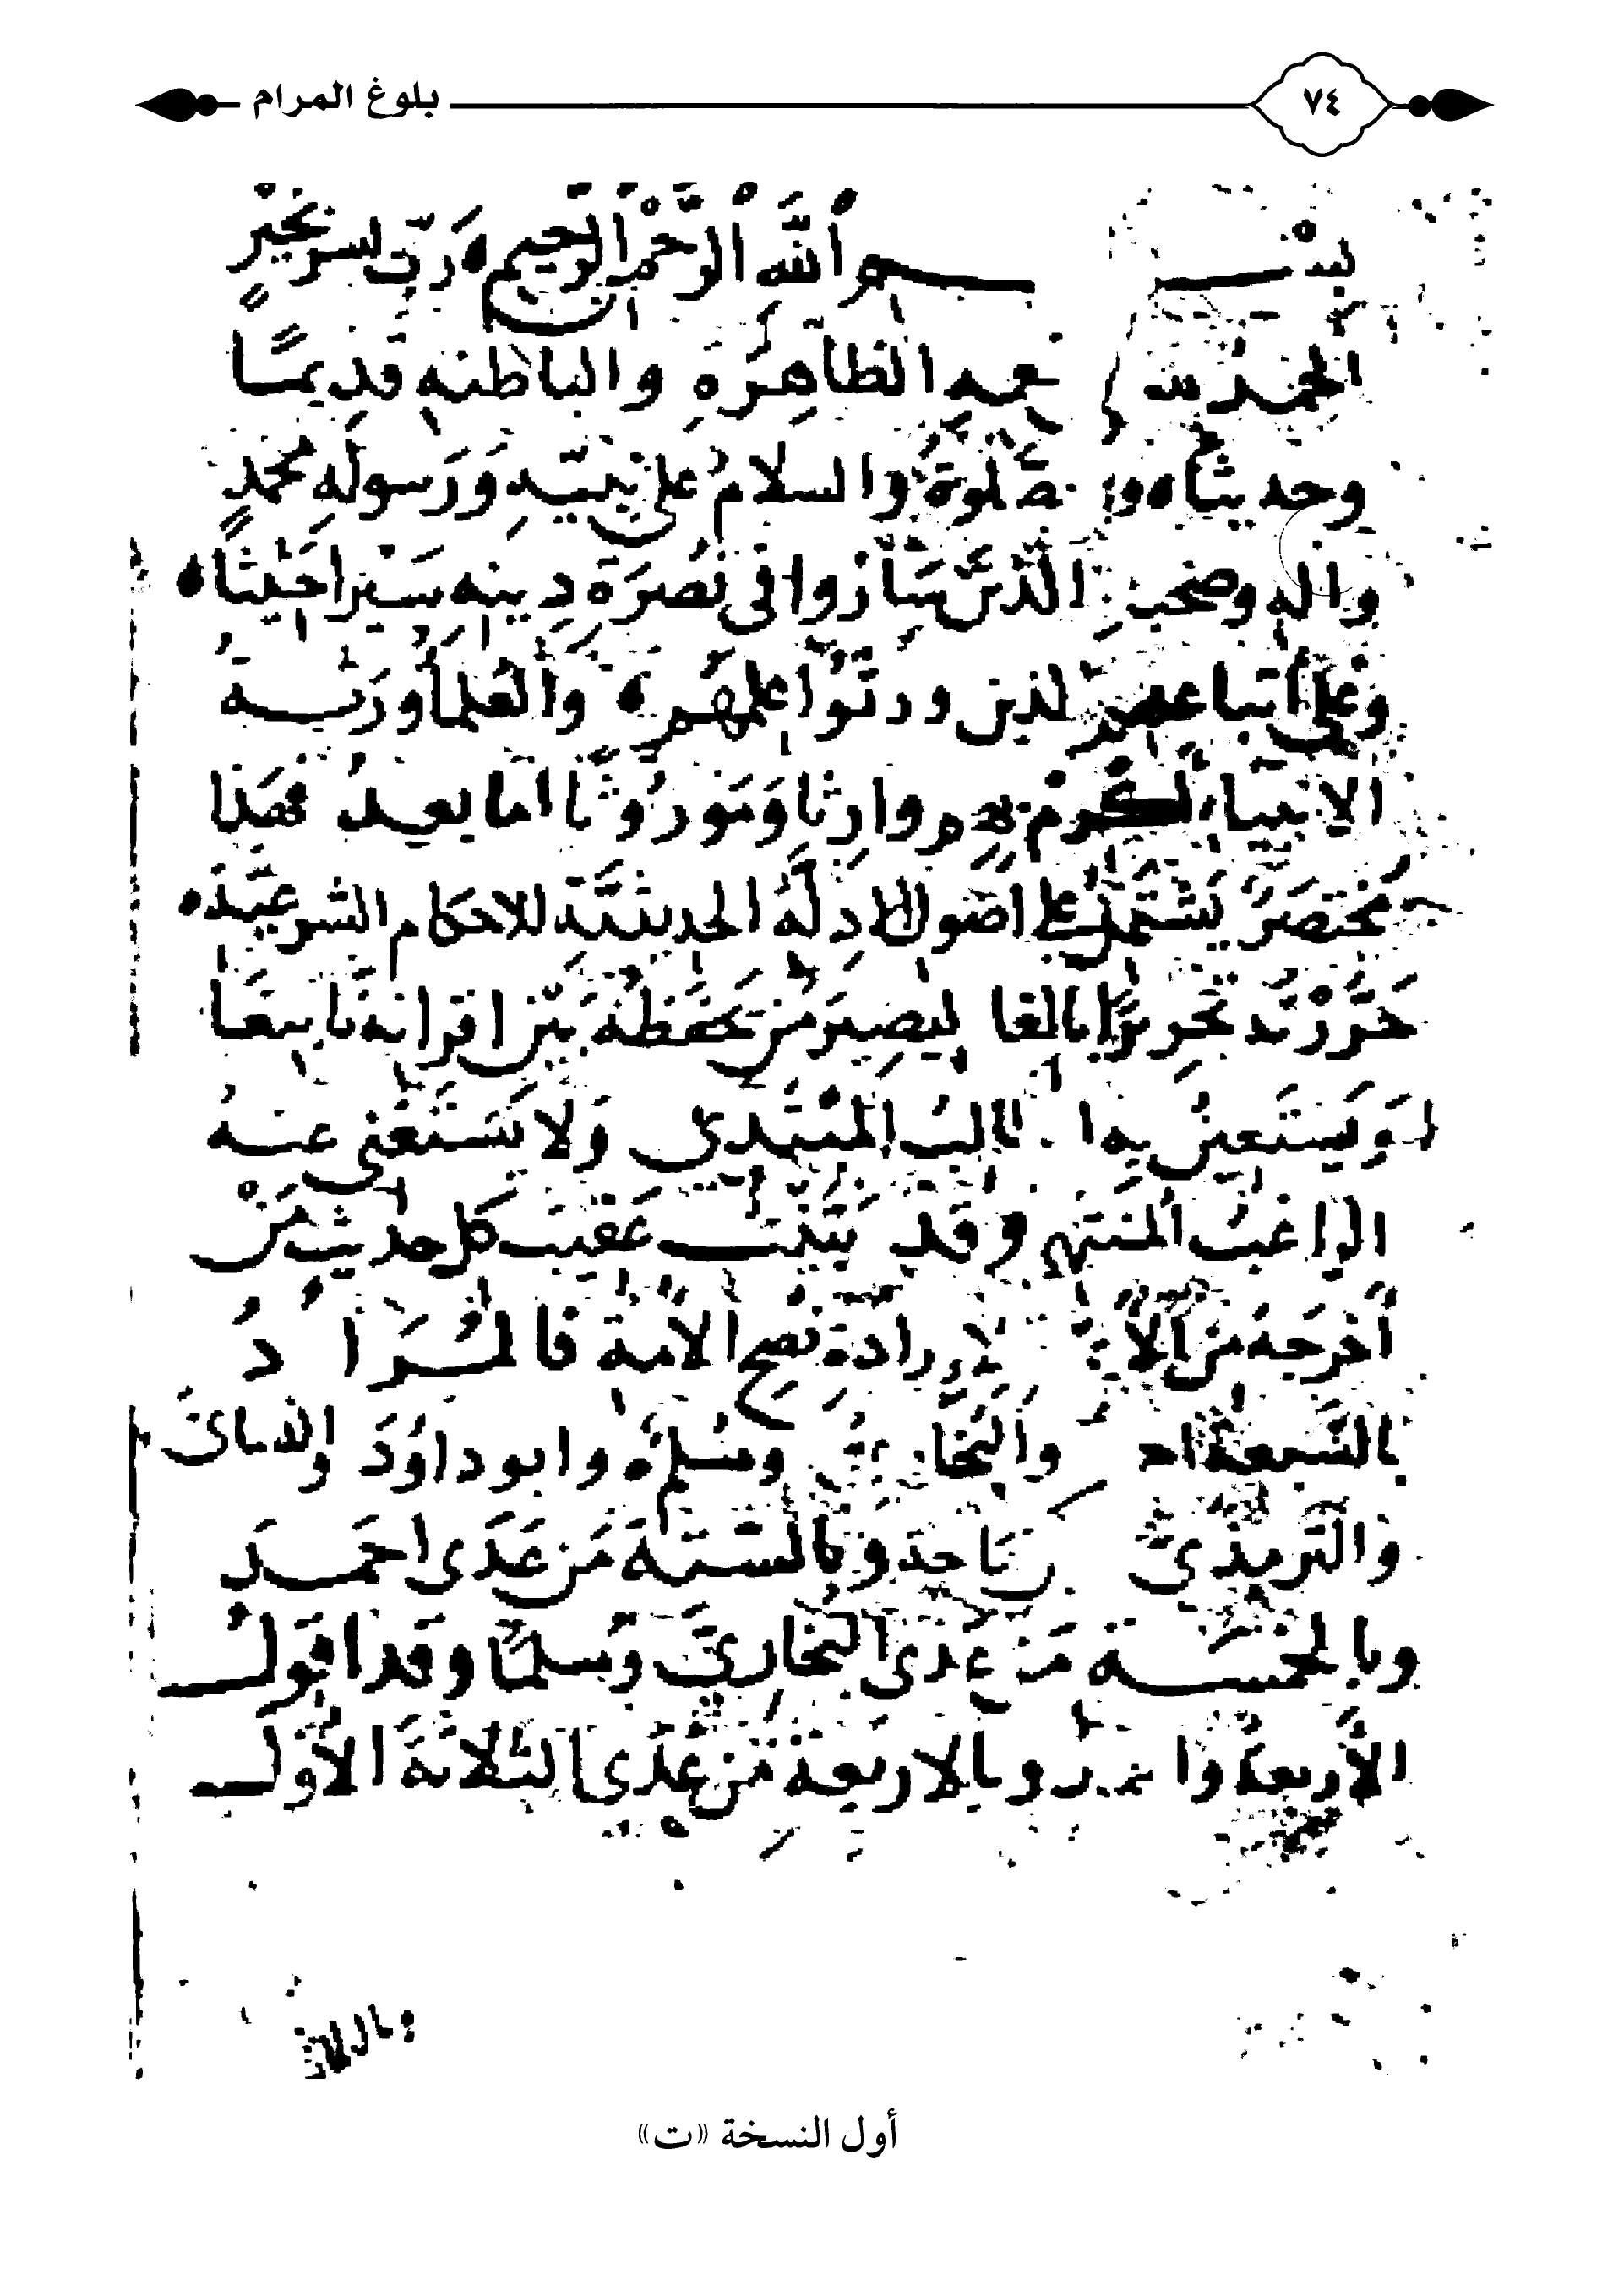 ٧٤
بلوغ المرام
بســـم الله الرحمن الرحيم ه رب يسر بخير
الحمد لله نعمه الظاهره والباطنه قديمًا
وحديثا ه و صلوة والسلام على نبيه ورسوله محمد
واله وصحبه الذين سَارُوا في نصرة دينه سيرا حثيثا ه
وعلى اتباعهم لذين ورثوا علمهم ه والعلماء ورثــه
الانبياء اكرم بهم وارثا وموروثا اما بعد فهذا
مختصر يشتمل على اصول الادلة الحديثية للاحكام الشرعيه ه
حررته تحريرًا بالغا ليصير من يحفظه بين اقرانه نابغا
ويستعين به الطالب المبتدي ولا يستغني عنه
الراغب المنتهي وقد بينت عقيب كل حديث من
أخرجه من الأ لإرادة نصح الأمة فالمراد
بالسبعة احـ والبخاري ومسلم ه وابو داود والنسائي
والترمذي و بالستة من عدى احمد
وبالخمسة من عدى البخاري ومسلما وقد اقول
الأربعة وا وبالاربعة من عدى الثلاثة الأول
أول النسخة «ت»